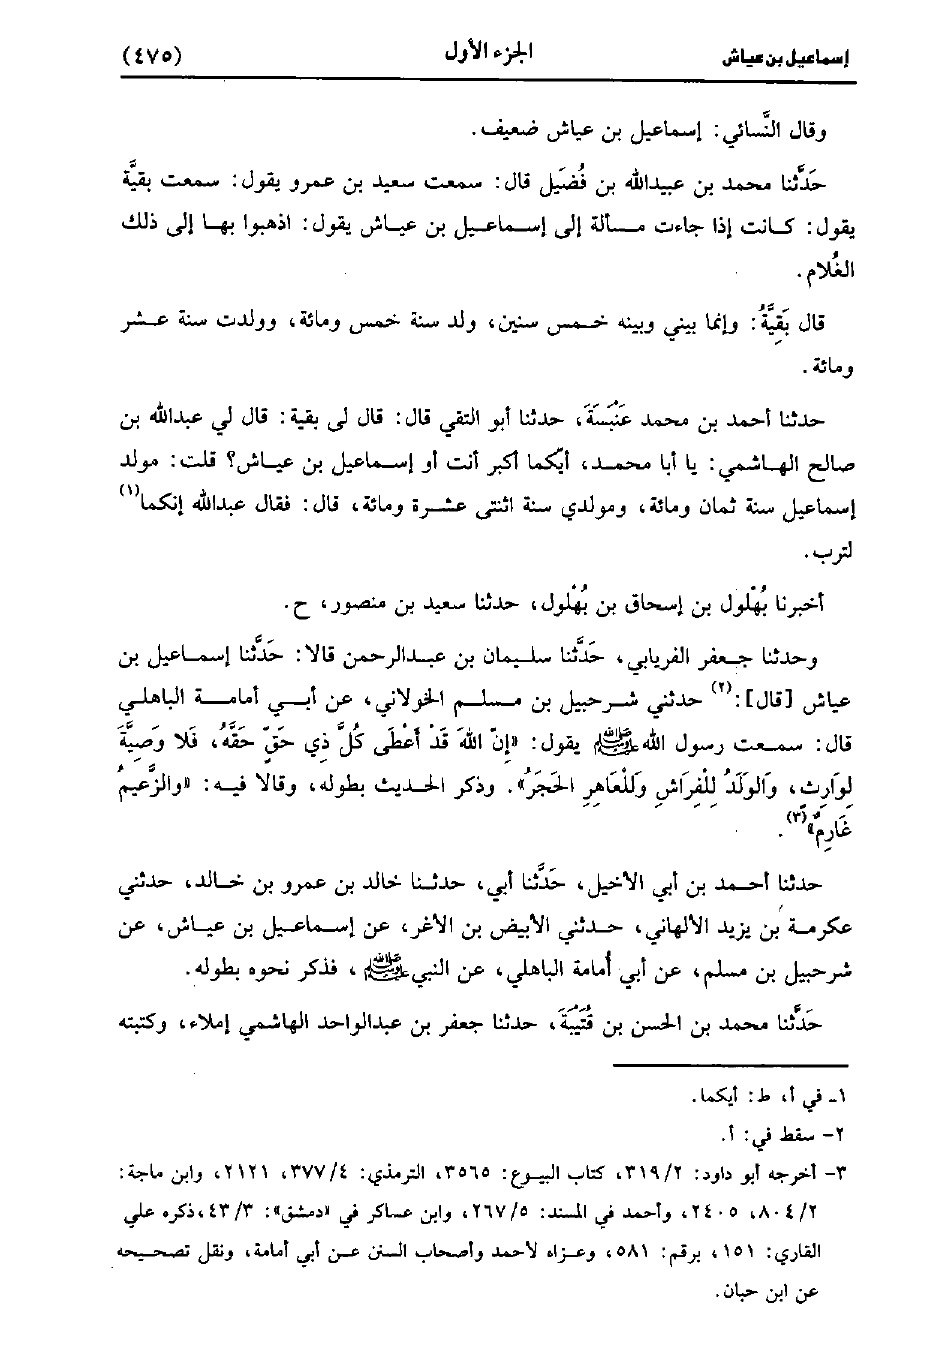 إسماعيل بن عياش الجزء الأول (٤٧٥)
وقال النَّسائي: إسماعيل بن عياش ضعيف.
حَدَّثنا محمد بن عبيدالله بن فُضَيل قال: سمعت سعيد بن عمرو يقول: سمعت بقيَّة
يقول: كانت إذا جاءت مسألة إلى إسماعيل بن عياش يقول: اذهبوا بها إلى ذلك
الغُلام.
قال بَقِيَّةُ: وإنما بيني وبينه خمس سنين، ولد سنة خمس ومائة، وولدت سنة عشر
ومائة.
حدثنا أحمد بن محمد عَنْبَسَةَ، حدثنا أبو التقي قال: قال لي بقية: قال لي عبدالله بن
صالح الهاشمي: يا أبا محمد، أيّكما أكبر أنت أو إسماعيل بن عياش؟ قلت: مولد
إسماعيل سنة ثمان ومائة، ومولدي سنة اثنتى عشرة ومائة، قال: فقال عبدالله إنكما(١)
لترب.
أخبرنا بُهْلول بن إسحاق بن بُهْلول، حدثنا سعيد بن منصور، ح.
وحدثنا جعفر الفريابي، حَدَّثنا سليمان بن عبدالرحمن قالا: حَدَّثنا إسماعيل بن
عياش [قال]:(٢) حدثني شرحبيل بن مسلم الخولاني، عن أبي أمامة الباهلي
قال: سمعت رسول الله ﷺ يقول: «إِنّ اللهَ قَدْ أَعْطَى كُلَّ ذي حَقّ حَقَّهُ، فَلا وَصِيَّةَ
لوَارِثٍ، وَالوَلَدُ لِلْفِرَاشِ وَلِلْعَاهِرِ الحَجَرُ». وذكر الحديث بطوله، وقالا فيه: «والزَّعيمُ
غَارِمٌ»(٣).
حدثنا أحمد بن أبي الأخيل، حَدَّثنا أبي، حدثنا خالد بن عمرو بن خالد، حدثني
عكرمة بن يزيد الألهاني، حدثني الأبيض بن الأغر، عن إسماعيل بن عياش، عن
شرحبيل بن مسلم، عن أبي أُمامة الباهلي، عن النبي ﷺ، فذكر نحوه بطوله.
حَدَّثنا محمد بن الحسن بن قُتَيْبَةَ، حدثنا جعفر بن عبدالواحد الهاشمي إملاء، وكتبته
١- في أ، ط: أيكما.
٢- سقط في: أ.
٣- أخرجه أبو داود: ٣١٩/٢، كتاب البيوع: ٣٥٦٥، الترمذي: ٣٧٧/٤، ٢١٢١، وابن ماجة:
٨٠٤/٢، ٢٤٠٥، وأحمد في المسند: ٢٦٧/٥، وابن عساكر في «دمشق»: ٤٣/٣،ذكره علي
القاري: ١٥١، برقم: ٥٨١، وعزاه لأحمد وأصحاب السنن عن أبي أمامة، ونقل تصحيحه
عن ابن حبان.